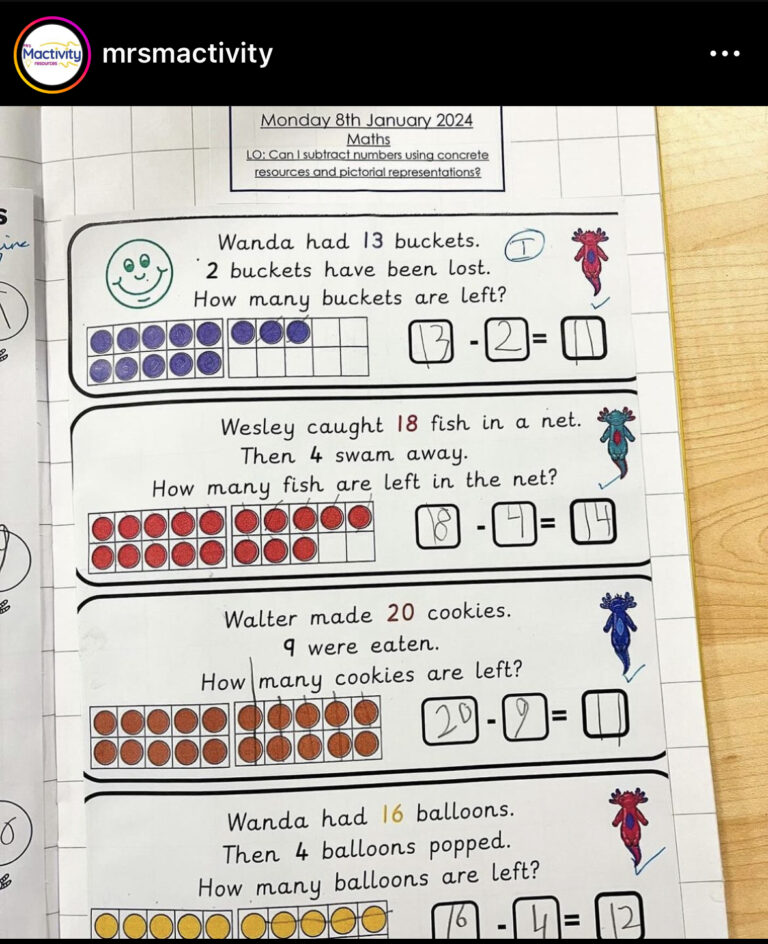 mrs
Mactivity
resources
mrsmactivity
Monday 8th January 2024
Maths
LO: Can I subtract numbers using concrete
resources and pictorial representations?
Wanda had 13 buckets.
2 buckets have been lost.
How many buckets are left?
I
13 - 2 = 11
Wesley caught 18 fish in a net.
Then 4 swam away.
How many fish are left in the net?
18 - 4 = 14
Walter made 20 cookies.
9 were eaten.
How many cookies are left?
20 - 9 = 11
Wanda had 16 balloons.
Then 4 balloons popped.
How many balloons are left?
16 - 4 = 12